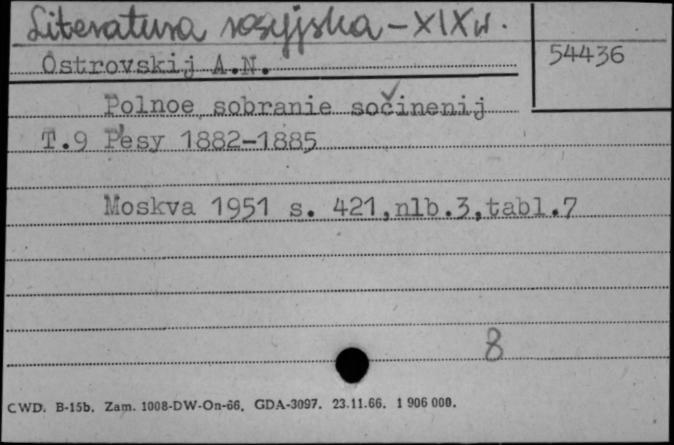 Literatura rosyjska – XIX w.
54436
Ostrovskij A.N.
Polnoe sobranie sočinenij
T.9 P'esy 1882-1885
Moskva 1951 s. 421,nlb.3,tabl.7
8
CWD. B-15b. Zam. 1008-DW-On-66. GDA-3097. 23.11.66. 1 906 000.